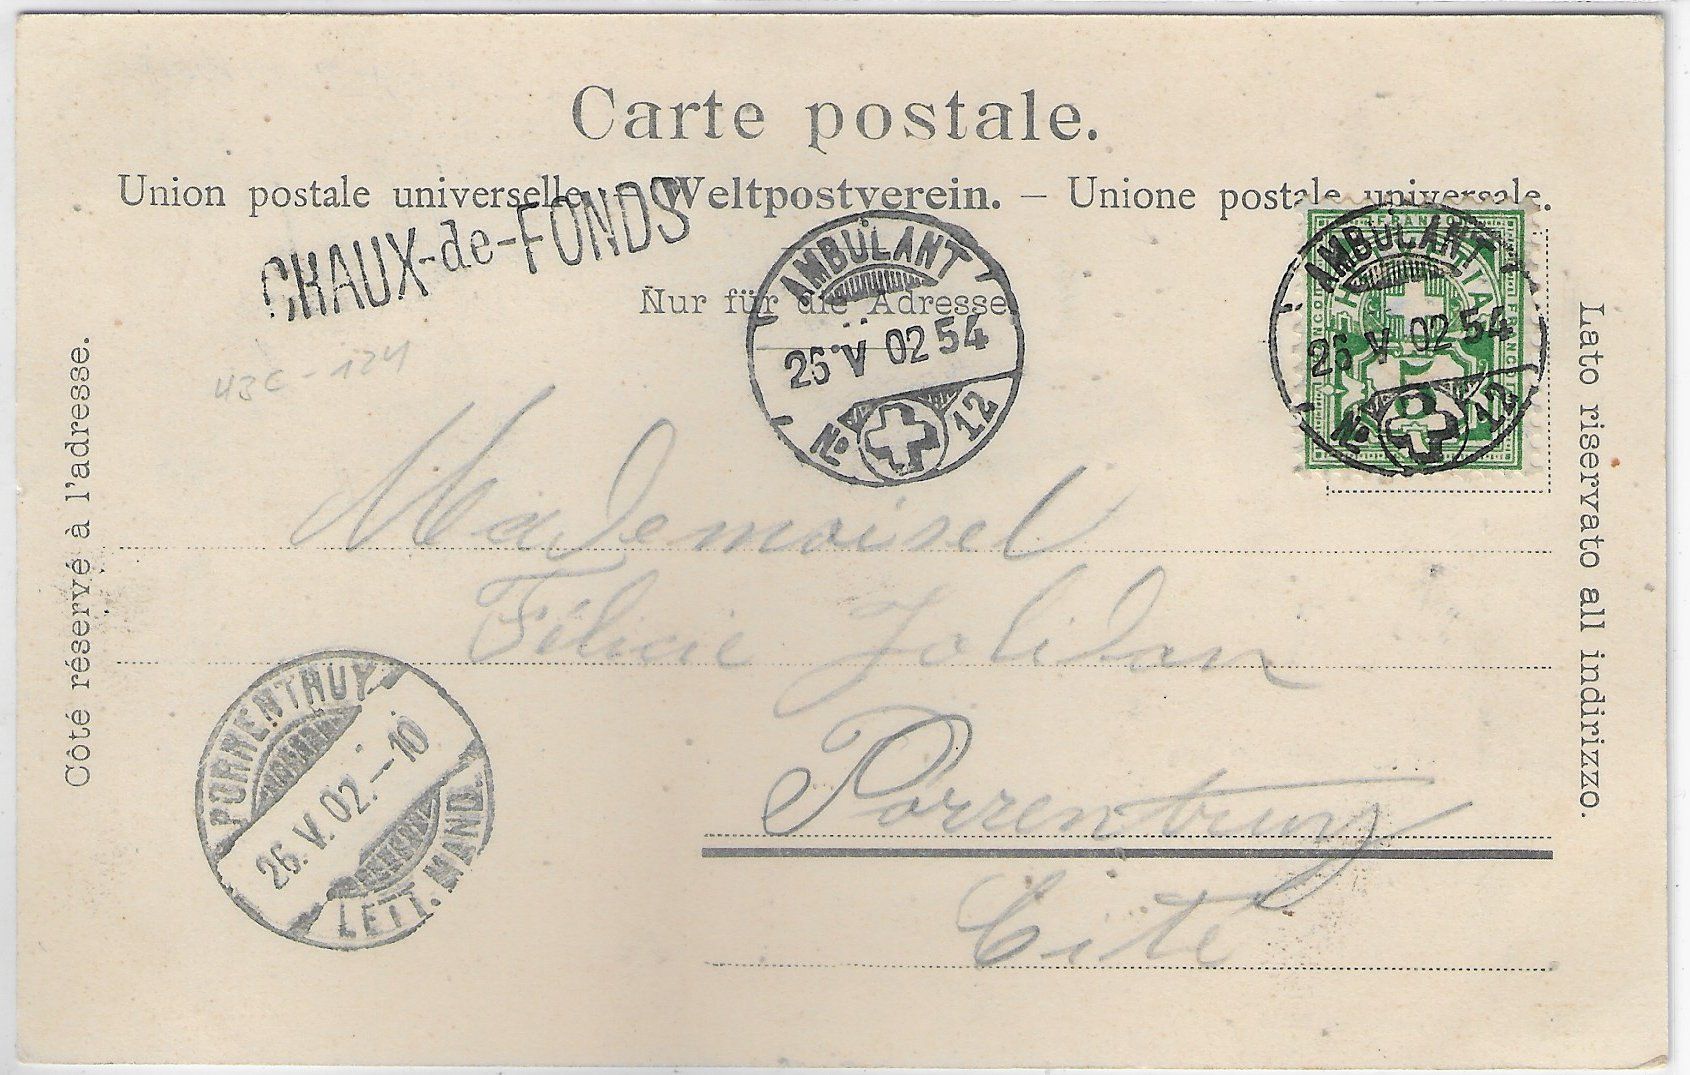 Carte postale.
Union postale universelle. – Weltpostverein. – Unione postale universale.
CHAUX-de-FONDS
Nur für die Adresse
AMBULANT
26 V 02 54
No 12
FRANCO
AMBULANT
26 V 02 54
No 12
5
Côté réservé à l'adresse.
Lato riservato all indirizzo.
43c-124
Mademoisel
Félicie Jolidon
Porrentruy
Cité
PORRENTRUY
26.V.02.–10
LETT. MAND.